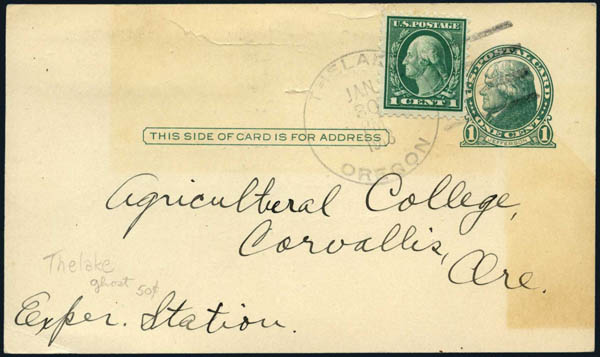 U.S. POSTAGE
1 CENT 1
POSTAL CARD
1 ONE CENT 1
JEFFERSON
JAN
OREGON
THIS SIDE OF CARD IS FOR ADDRESS
Agricultural College,
Corvallis,
Ore.
Thelake
ghost 50¢
Exper. Station.